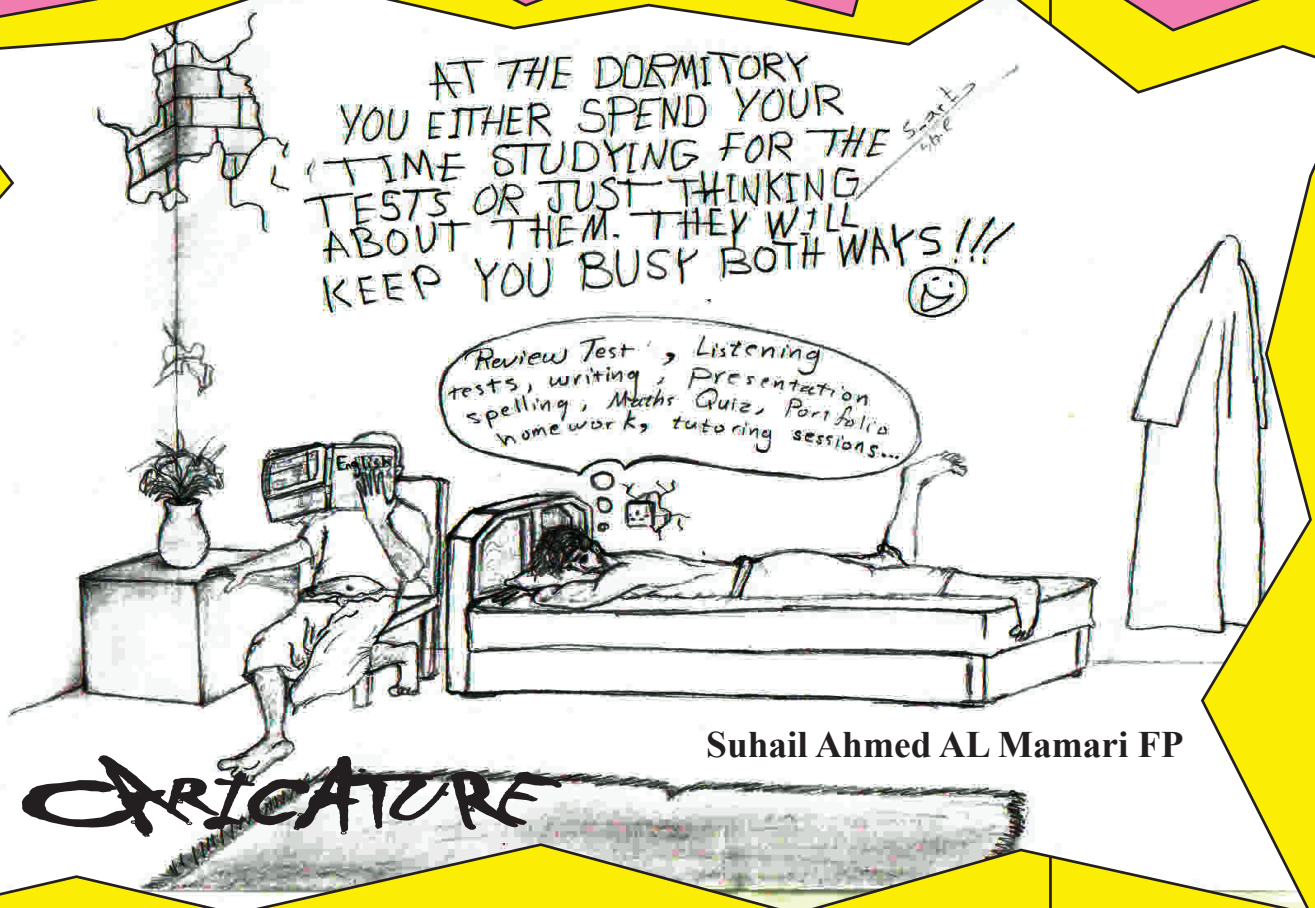 AT THE DORMITORY
YOU EITHER SPEND YOUR
TIME STUDYING FOR THE
TESTS OR JUST THINKING
ABOUT THEM. THEY WILL
KEEP YOU BUSY BOTH WAYS!!!
Review Test, Listening
tests, writing, presentation
spelling, Maths Quiz, Portfolio
homework, tutoring sessions...
English
Suhail Ahmed AL Mamari FP
CARICATURE